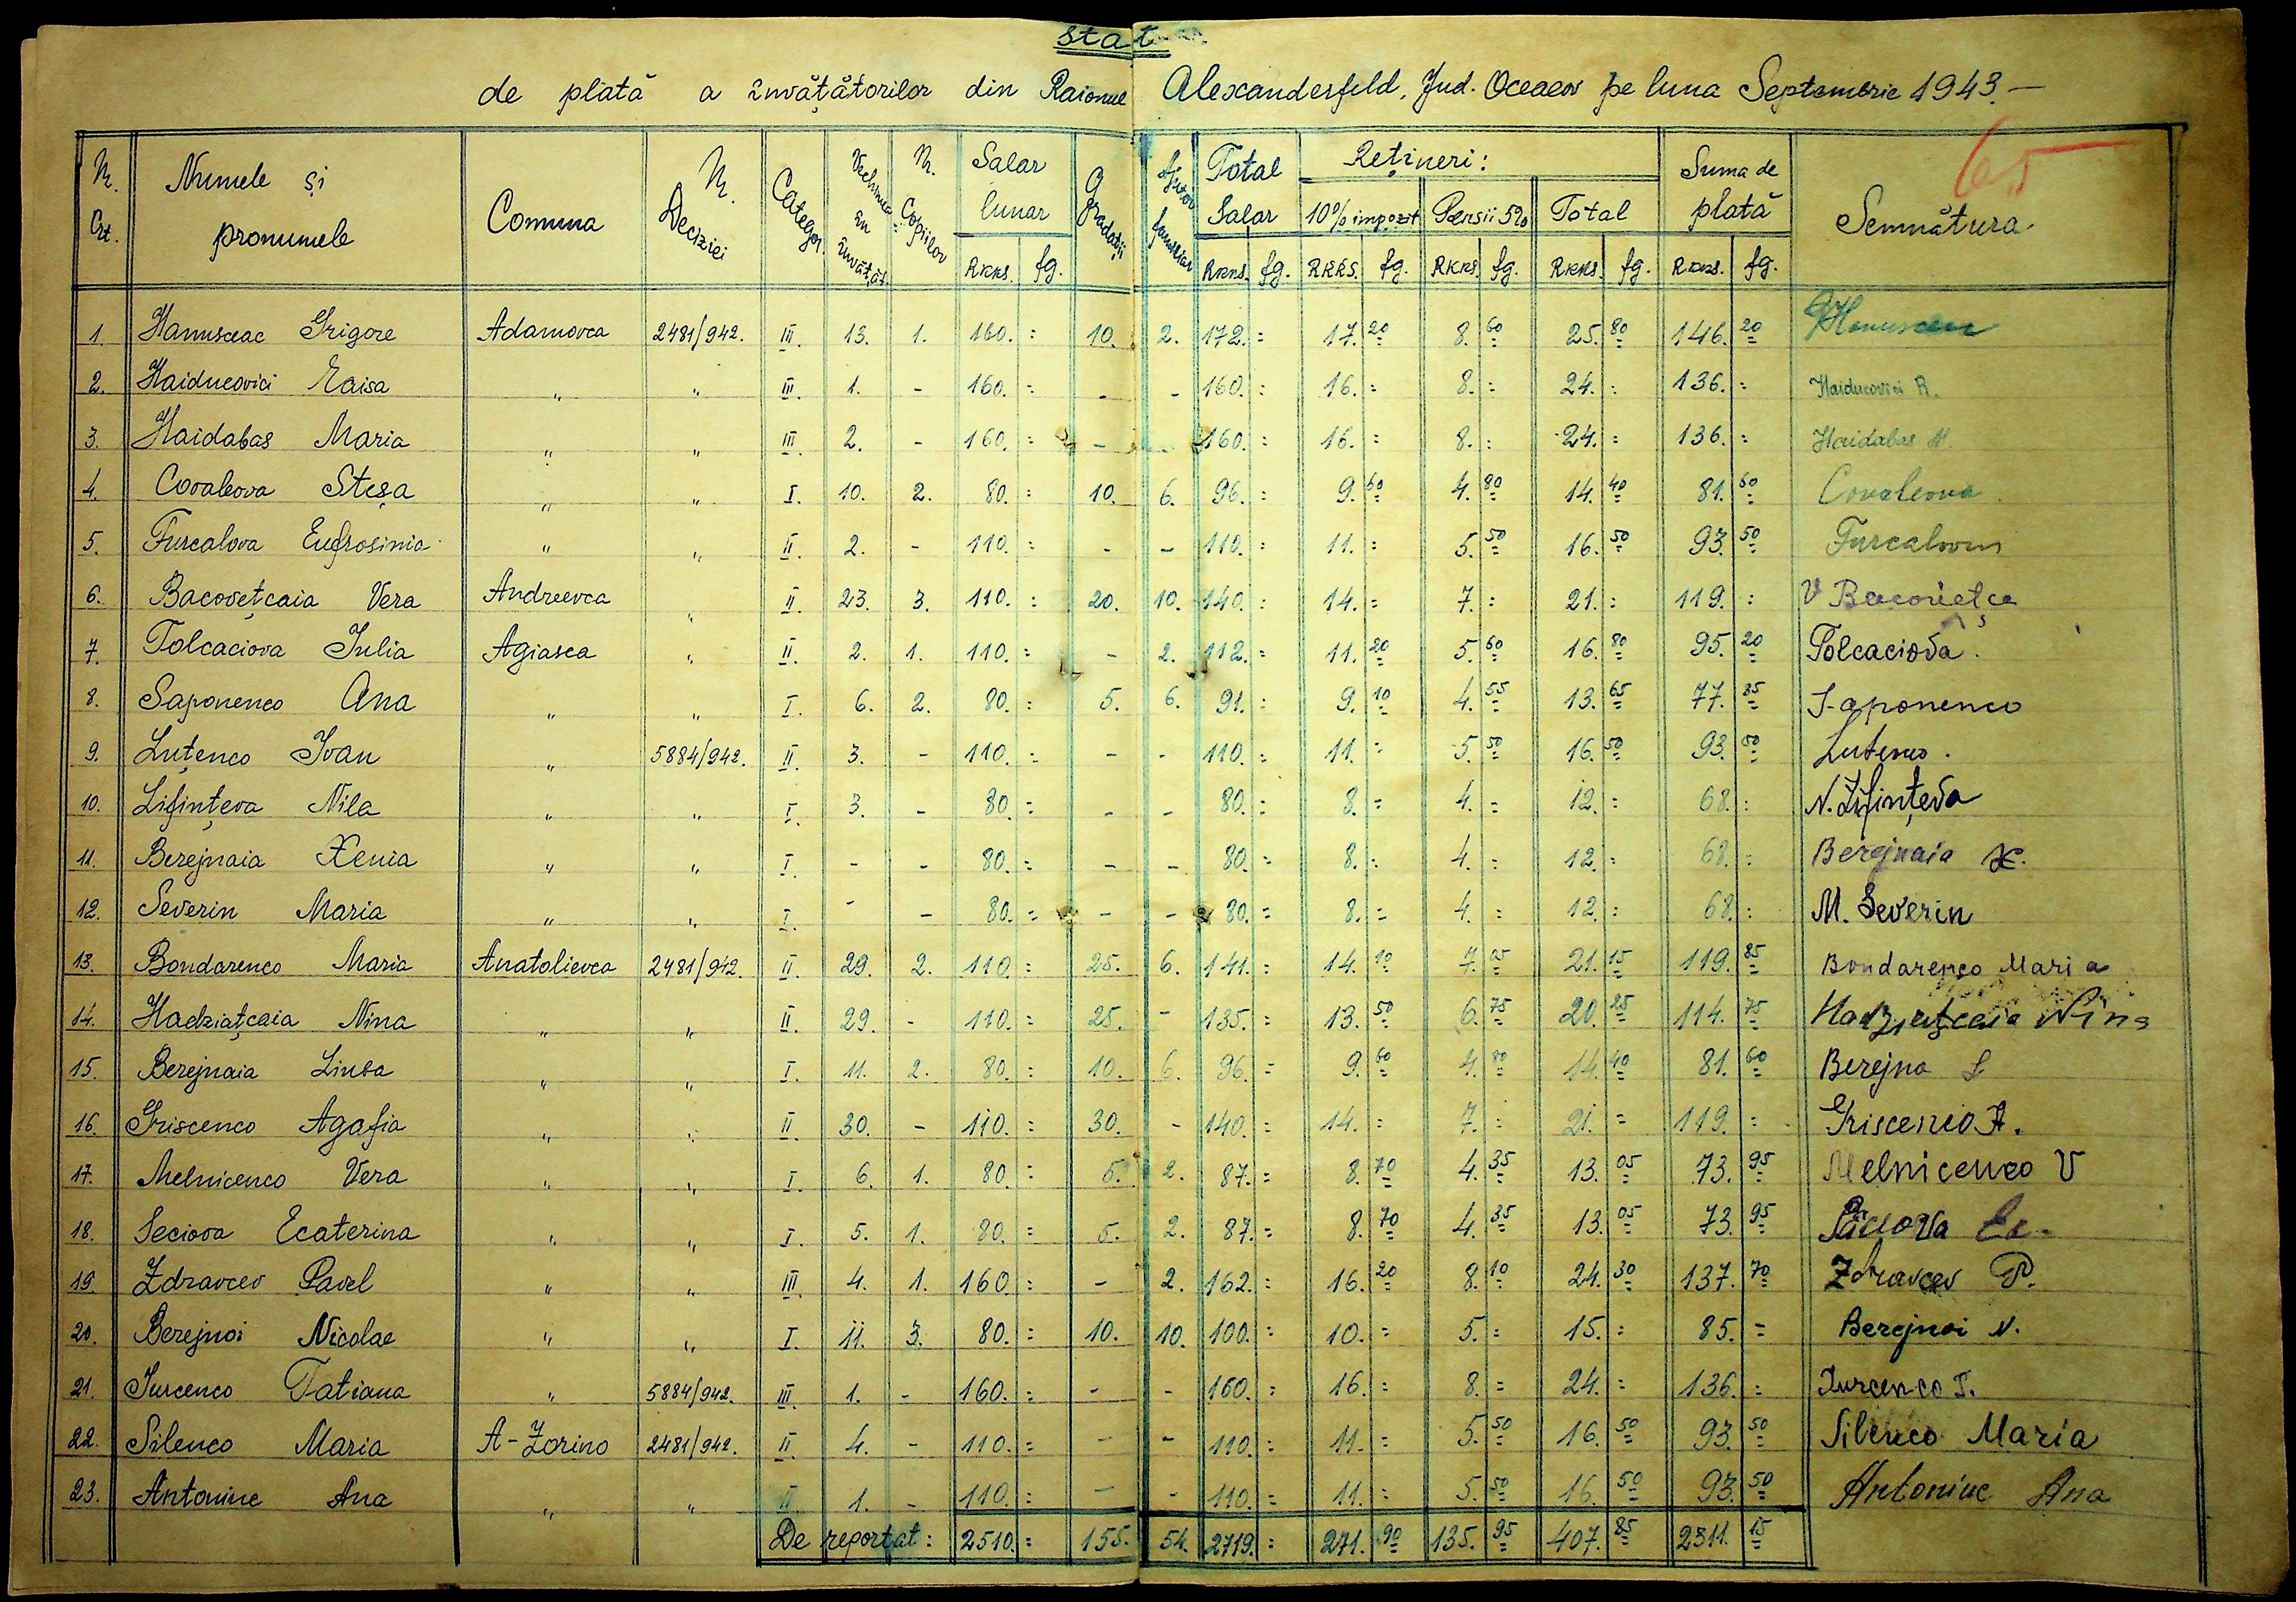 Stat
de plată a învățătorilor din Raionul Alexanderfeld, Jud. Oceacov pe luna Septembrie 1943.—
65
Nr. Crt. Numele și pronumele Comuna Nr. Deciziei Categor. Vechimea în învățăt. Nr. Copiilor Salar lunar Gradații Ajutor familiar Total Salar Rețineri: Suma de plată Semnătura
10% impozit Pensii 5% Total
RKKS. fg. RKKS. fg. RKKS. fg. RKKS. fg. RKKS. fg. RKKS. fg.
1. Hanusceac Grigore Adamovca 2481/942. III. 13. 1. 160. = 10. 2. 172. = 17. 20 8. 60 25. 80 146. 20 Hanusceac
2. Haiducovici Raisa " " III. 1. - 160. = - - 160. = 16. = 8. = 24. = 136. = Haiducovici R.
3. Haidabas Maria " " III. 2. - 160. = - - 160. = 16. = 8. = 24. = 136. = Haidabas M.
4. Covaleova Steșa " " I. 10. 2. 80. = 10. 6. 96. = 9. 60 4. 80 14. 40 81. 60 Covaleova.
5. Furcalova Eufrosinia " " II. 2. - 110. = - - 110. = 11. = 5. 50 16. 50 93. 50 Furcalova
6. Bacovețcaia Vera Andreevca " II. 23. 3. 110. = 20. 10. 140. = 14. = 7. = 21. = 119. = V Bacovețca
7. Tolcaciova Iulia Agiasca " II. 2. 1. 110. = - 2. 112. = 11. 20 5. 60 16. 80 95. 20 Tolcaciova.
8. Saponenco Ana " " I. 6. 2. 80. = 5. 6. 91. = 9. 10 4. 55 13. 65 77. 35 Saponenco
9. Luțenco Ivan " 5884/942. II. 3. - 110. = - - 110. = 11. = 5. 50 16. 50 93. 50 Lutenco.
10. Lifințeva Nila " " I. 3. - 80. = - - 80. = 8. = 4. = 12. = 68. = N. Lifințeva
11. Berejnaia Xenia " " I. - - 80. = - - 80. = 8. = 4. = 12. = 68. = Berejnaia X.
12. Severin Maria " " I. - - 80. = - - 80. = 8. = 4. = 12. = 68. = M. Severin
13. Bondarenco Maria Anatolievca 2481/942. II. 29. 2. 110. = 25. 6. 141. = 14. 10 7. 05 21. 15 119. 85 Bondarenco Maria
14. Hadziațcaia Nina " " II. 29. - 110. = 25. - 135. = 13. 50 6. 75 20. 25 114. 75 Hadziațcaia Nina
15. Berejnaia Liuba " " I. 11. 2. 80. = 10. 6. 96. = 9. 60 4. 80 14. 40 81. 60 Berejna L
16. Griscenco Agafia " " II. 30. - 110. = 30. - 140. = 14. = 7. = 21. = 119. = Griscenco A.
17. Melnicenco Vera " " I. 6. 1. 80. = 5. 2. 87. = 8. 70 4. 35 13. 05 73. 95 Melnicenco V
18. Seciova Ecaterina " " I. 5. 1. 80. = 5. 2. 87. = 8. 70 4. 35 13. 05 73. 95 Ec.
19. Zdravcev Pavel " " III. 4. 1. 160. = - 2. 162. = 16. 20 8. 10 24. 30 137. 70 Zdravcev P.
20. Berejnoi Nicolae " " I. 11. 3. 80. = 10. 10. 100. = 10. = 5. = 15. = 85. = Berejnoi N.
21. Iurcenco Tatiana " 5884/942. III. 1. - 160. = - - 160. = 16. = 8. = 24. = 136. = Iurcenco T.
22. Silenco Maria A-Zorino 2481/942. II. 4. - 110. = - - 110. = 11. = 5. 50 16. 50 93. 50 Silenco Maria
23. Antoniuc Ana " " II. 1. - 110. = - - 110. = 11. = 5. 50 16. 50 93. 50 Antoniuc Ana
De reportat: 2510. = 155. 54. 2719. = 271. 90 135. 95 407. 85 2311. 15